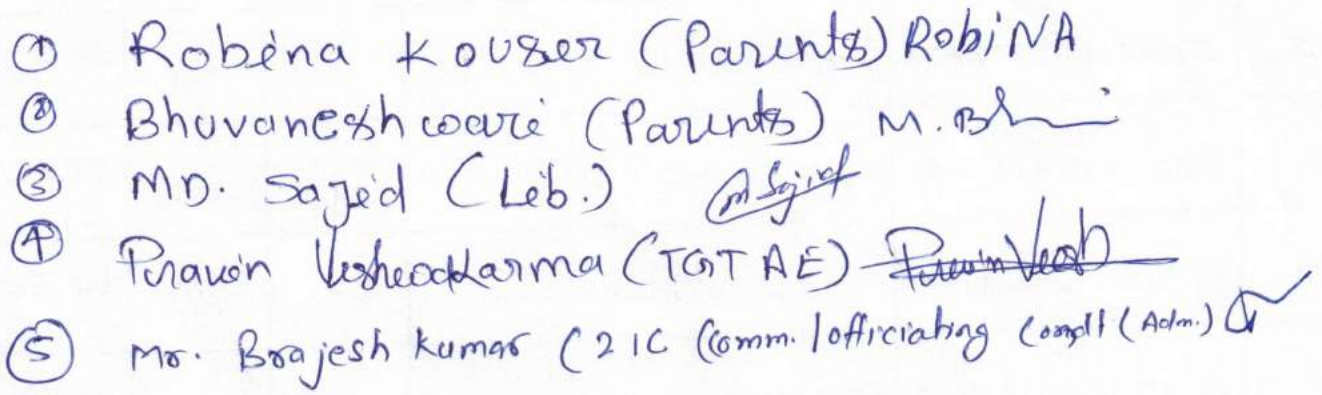 ① Robina Kouser (Parents) RobiNA
② Bhuvaneshwari (Parents) M. Bh
③ MD. Sajid (Lib.) M Sajid
④ Pravin Vishwakarma (TGT AE) Pravin Vish
⑤ Mr. Brajesh Kumar (2 IC (Comm. / officiating Comdt (Adm.)